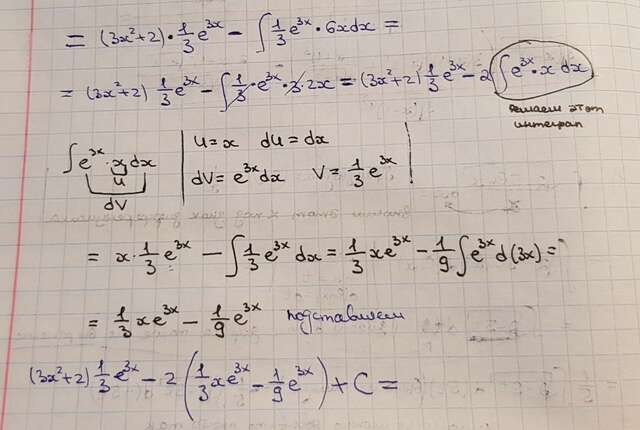 = (3x²+2)·1/3 e^3x − ∫ 1/3 e^3x · 6x dx =
= (3x²+2) 1/3 e^3x − ∫ 1/3 · e^3x · 3·2x = (3x²+2) 1/3 e^3x − 2 ∫ e^3x · x dx
решаем этот
интеграл
∫ e^3x · x dx
u
dV
u = x du = dx
dV = e^3x dx V = 1/3 e^3x
= x · 1/3 e^3x − ∫ 1/3 e^3x dx = 1/3 x e^3x − 1/9 ∫ e^3x d(3x) =
= 1/3 x e^3x − 1/9 e^3x подставляем
(3x²+2) 1/3 e^3x − 2 (1/3 x e^3x − 1/9 e^3x) + C =